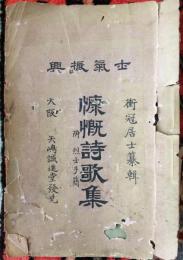 士氣振興
衝冠居士纂輯
慷慨詩歌集
附烈士手簡
大阪 天嶋誠進堂發兌